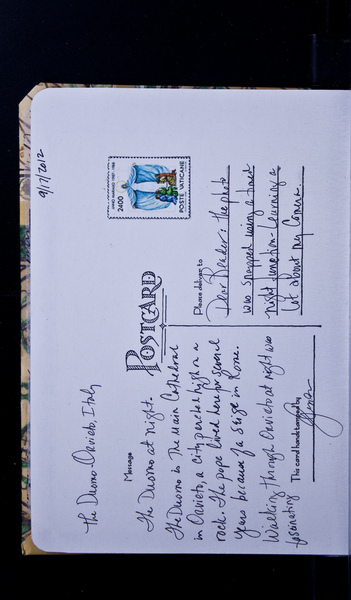 9/17/2012
The Duomo - Orvieto, Italy
POSTCARD
ANNO MARIANO 1987-1988
2400
POSTE VATICANE
Message
The Duomo at Night.
The Duomo is the Main Cathedral
in Orvieto, a city perched high on a
rock. The pope lived here for several
years because of a seige in Rome.
Walking through Orvieto at night was
fascinating
This card hand stamped by
Please deliver to
Dear Reader: the photo
was snapped using a
night function - learning a
lot about my camera.